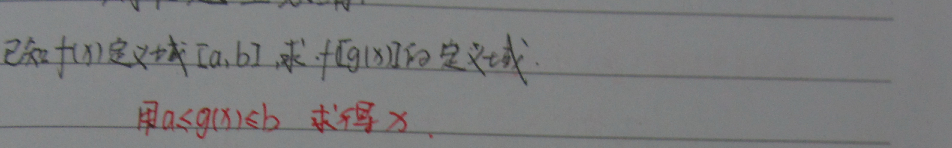 已知f(x)定义域[a,b],求f[g(x)]的定义域.
用a≤g(x)≤b 求得x.